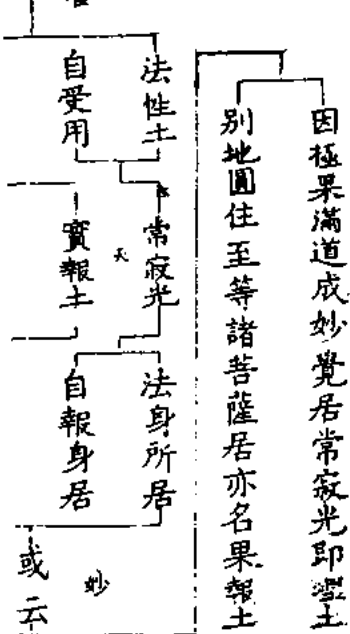 因極果滿道成妙覺居常寂光即
土
別地圓住至等諸菩薩居亦名果報土
法性土
常寂光
法身所居
自受用
實報土
自報身居
天
妙
或云